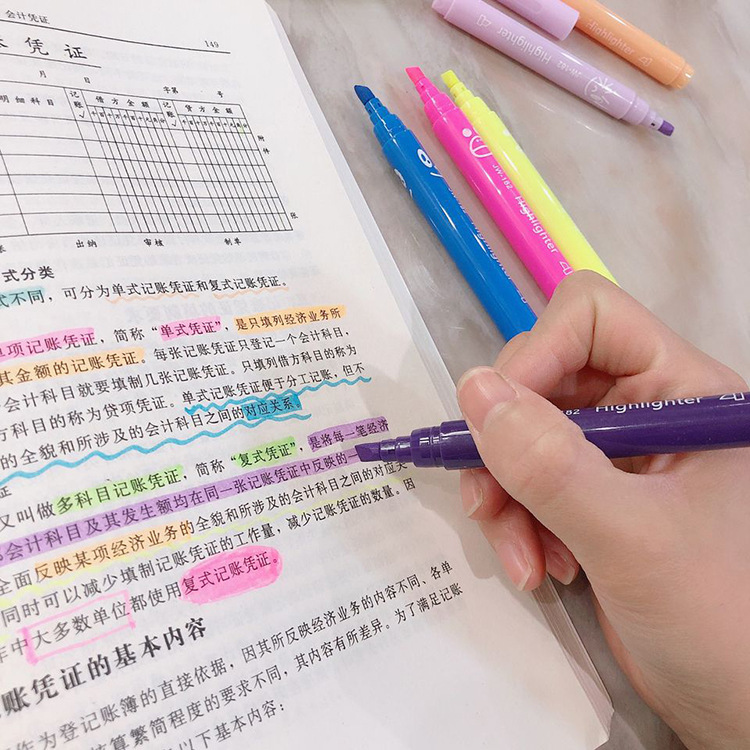 会计凭证
149
凭证
月 日 字第 号
明细科目 记账√ 借方金额 记账√ 贷方金额
附件
张
出纳 审核 制单
式分类
式不同，可分为单式记账凭证和复式记账凭证。
单项记账凭证，简称“单式凭证”，是只填列经济业务所
其金额的记账凭证。每张记账凭证只登记一个会计科目，
会计科目就要填制几张记账凭证。只填列借方科目的称为
方科目的称为贷项凭证。单式记账凭证便于分工记账，但不
的全貌和所涉及的会计科目之间的对应关系
证
又叫做多科目记账凭证，简称“复式凭证”，是将每一笔经济
会计科目及其发生额均在同一张记账凭证中反映的一
全面反映某项经济业务的全貌和所涉及的会计科目之间的对应关
同时可以减少填制记账凭证的工作量，减少记账凭证的数量。因
中大多数单位都使用复式记账凭证。
账凭证的基本内容
作为登记账簿的直接依据，因其所反映经济业务的内容不同、各单
核算繁简程度的要求不同，其内容有所差异。为了满足记账
以下基本内容：
Highlighter
Highlighter JW-182
JW-182 Highlighter
Highlighter
182 Highlighter